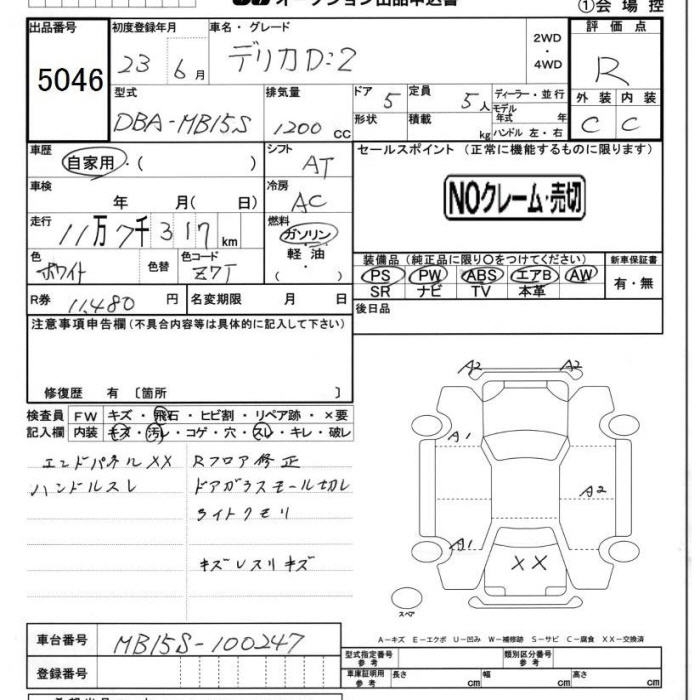 オークション出品申込書
①会場控
出品番号
5046
初度登録年月
23年 6月
車名・グレード
デリカD:2
2WD
・
4WD
評価点
R
外装 内装
C C
型式
DBA-MB15S
排気量
1200 cc
ドア 5
定員 5人
形状
積載 kg
ディーラー・並行
モデル年式 年
ハンドル 左・右
車歴
自家用・( )
シフト
AT
セールスポイント (正常に機能するものに限ります)
NOクレーム・売切
車検
年 月( 日)
冷房
AC
走行
11万7千317km
燃料
ガソリン・軽油・
色
ホワイト
色替
色コード
Z7T
装備品 (純正品に限り○をつけてください)
PS PW ABS エアB AW
SR ナビ TV 本革
新車保証書
有・無
R券 11,480 円
名変期限 月 日
後日品
注意事項申告欄 (不具合内容等は具体的に記入して下さい)
修復歴 有 〔箇所 〕
検査員記入欄
FW キズ・飛石・ヒビ割・リペア跡・×要
内装 キズ・汚レ・コゲ・穴・スレ・キレ・破レ
エンドパネルXX
ハンドルスレ
Rフロア修正
ドアガラスモール切レ
ライトクモリ
キズレスリキズ
A2 A2
A1
A2
A1
XX
スペア
A-キズ E-エクボ U-凹み W-補修跡 S-サビ C-腐食 XX-交換済
車台番号
MB15S-100247
登録番号
型式指定番号 参考
類別区分番号 参考
車庫証明用 参考
長さ cm
幅 cm
高さ cm